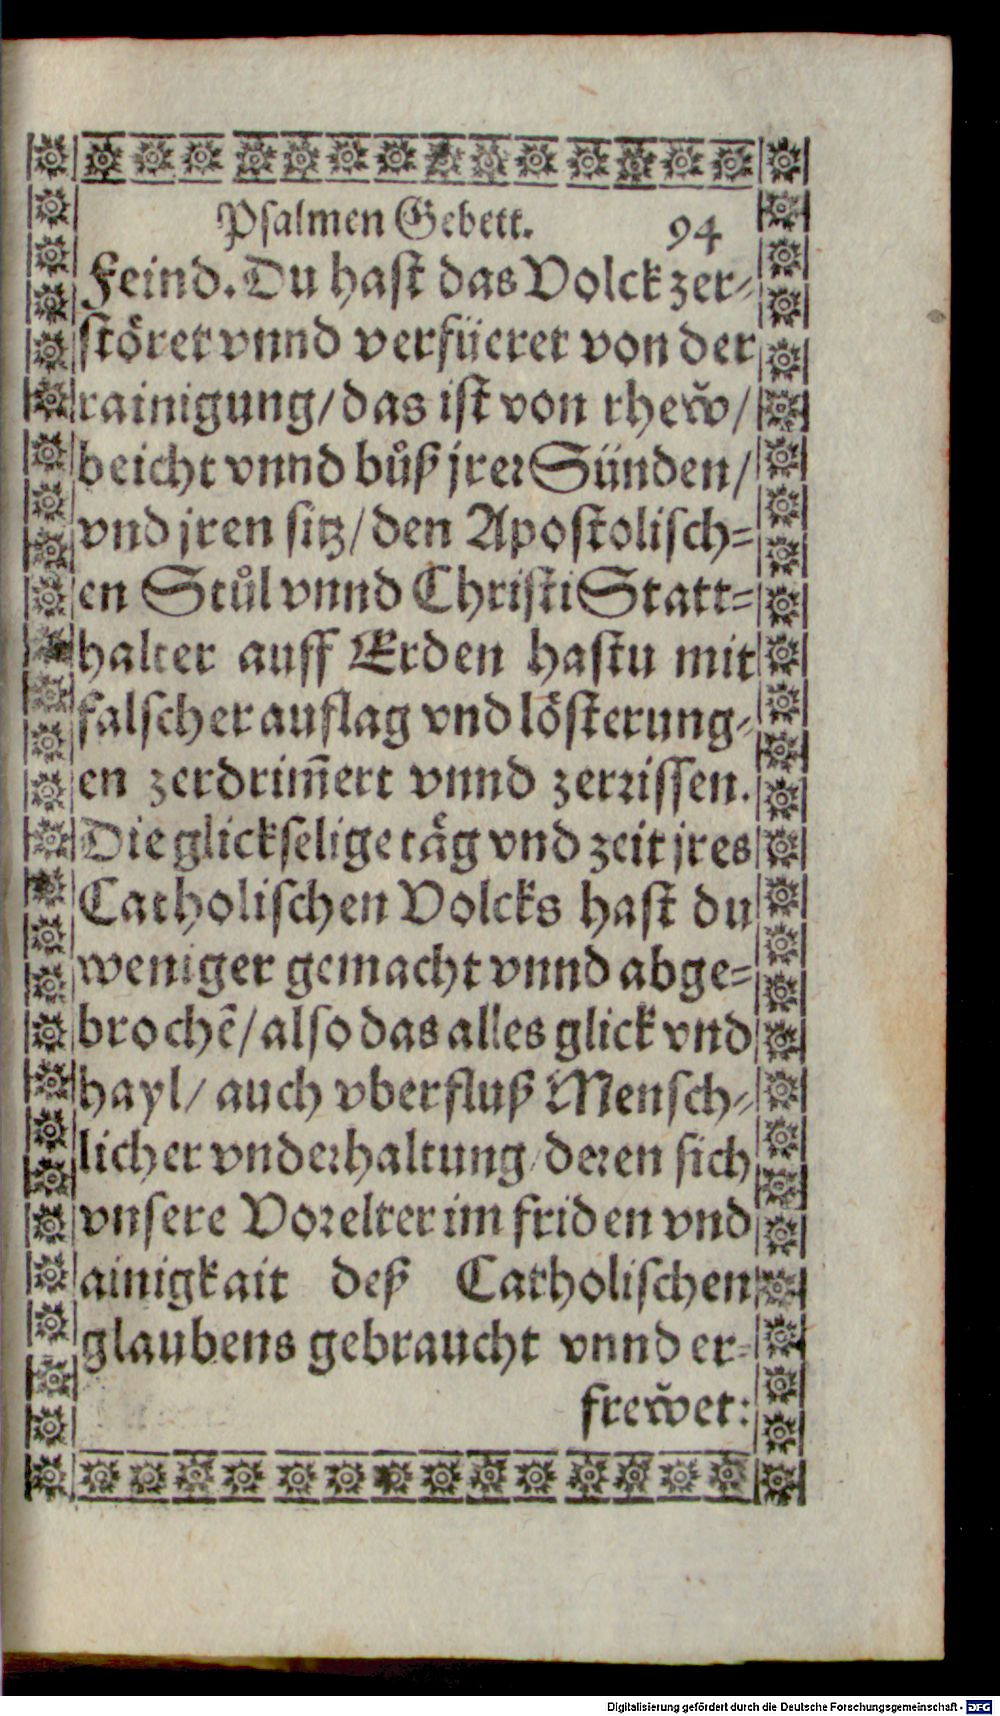 Psalmen Gebett. 94
Feind. Du hast das Volck zer-
störet vnnd verfüeret von der
rainigung/ das ist von rhew̆/
beicht vnnd bůß jrer Sünden/
vnd jren sitz/ den Apostolisch=
en Stůl vnnd Christi Statt=
halter auff Erden hastu mit
falscher auflag vnd lösterung-
en zerdrim̄ert vnnd zerrissen.
Die glickselige täg vnd zeit jres
Catholischen Volcks hast du
weniger gemacht vnnd abge=
brochẽ/ also das alles glick vnd
hayl/ auch vberfluß Mensch-
licher vnderhaltung/ deren sich
vnsere Vorelter im friden vnd
ainigkait deß Catholischen
glaubens gebraucht vnnd er-
frew̆et:
Digitalisierung gefördert durch die Deutsche Forschungsgemeinschaft - DFG